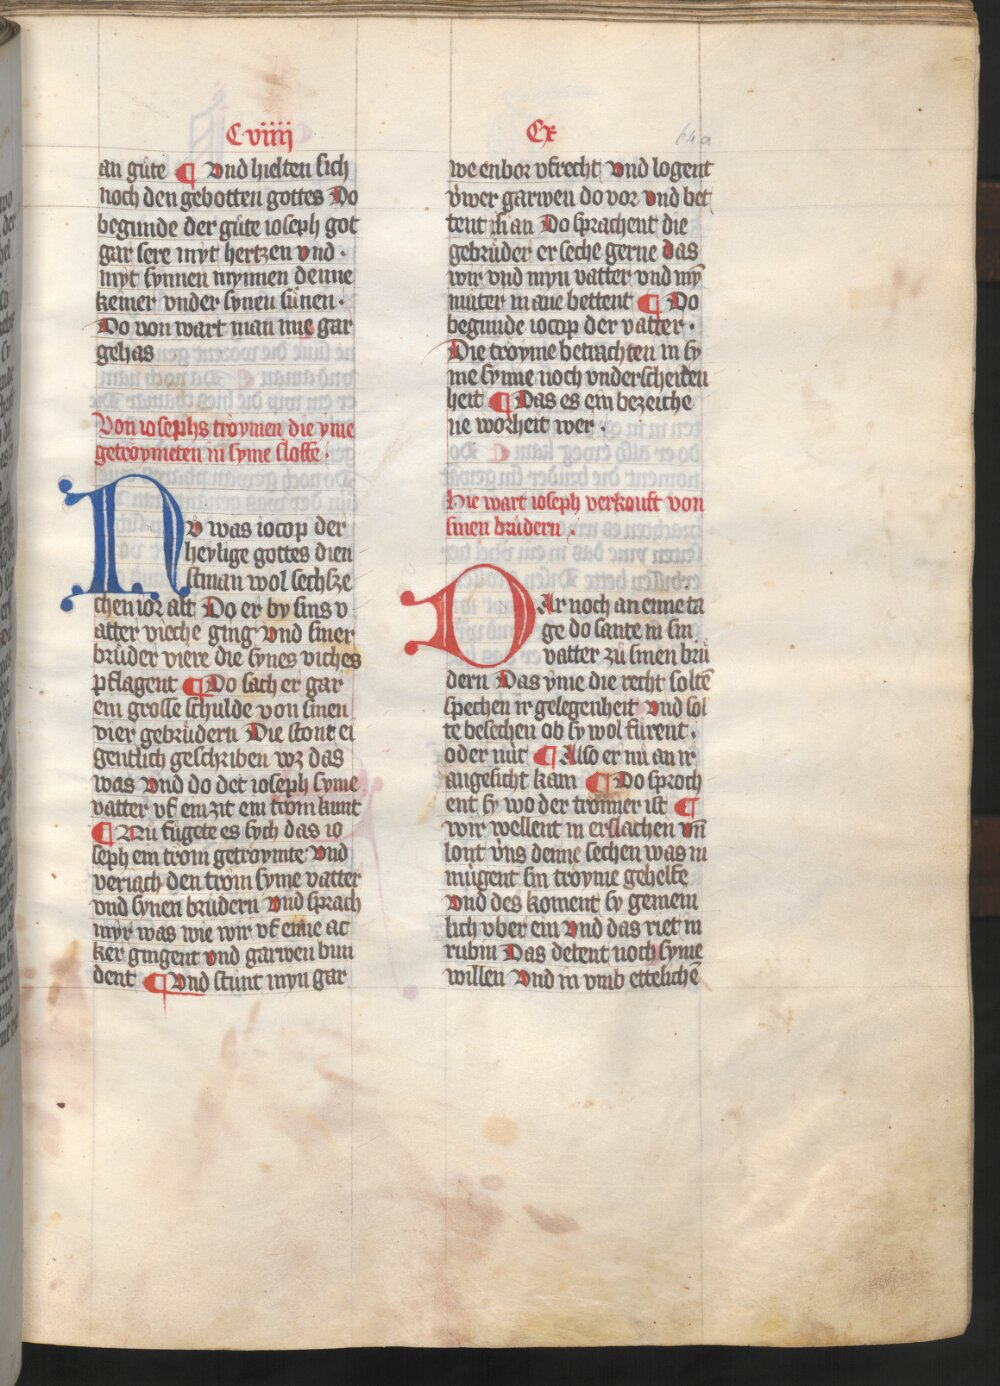 C viiij
an gûte ¶ Vnd hielten sich
noch den gebotten gottes Do
begunde der gûte ioseph got
gar sere myt hertzen vnd ·
myt synnen mynnen denne
keiner vnder synen sünen ·
Do von wart man ime gar
gehas
Von iosephs tröymen die yme
getröymeten in syme sloffe ·
NV was iocop der
heylige gottes dien
stman wol sechsze
chen ior alt Do er by sins v
atter vieche ging Vnd siner
brüder viere die synes viches
pflagent ¶ Do sach er gar
ein grosse schulde von sinen
vier gebrüdern Die stont ei
gentlich geschriben wz das
was Vnd do det ioseph syme
vatter vf ein zit ein trom kunt
¶ Nů fügete es sych das io
seph ein trom getroymte Vnd
veriach den trom syme vatter
vnd synen brüdern Vnd sprach
myr was wie wir vf eime ac
ker gingent vnd garwen bun
dent ¶ Vnd stunt myn gar
Cx
we enbor vfrecht Vnd logent
ůwer garwen do vor Vnd bet
tent an Do sprachent die
gebrüder er seche gerne das
wir vnd myn vatter vnd mÿ
muter in ane bettent ¶ Do
begunde iocop der vatter ·
Die tröyme betrachten in sy
me synne noch vnderscheiden
heit ¶ Das es ein bezeiche
ne worheit wer ·
Hie wart ioseph verkouft von
sinen brüdern ·
DAr noch an eime ta
ge do sante in sin
vatter zů sinen brü
dern Das yme die recht soltē
spechen ir gelegenheit Vnd sol
te besechen ob sy wol fürent ·
oder nüt ¶ Also er nü an ir
angesicht kam ¶ Do sproch
ent sy wo der tromer ist ¶
wir wellent in erslachen vn̄
lont vns denne sechen was in
mügent sin tröyme gehelfe
Vnd des koment sy gemein
lich vber ein Vnd das riet in
rubin Das detent noch syme
willen Vnd in vmb ettelichē